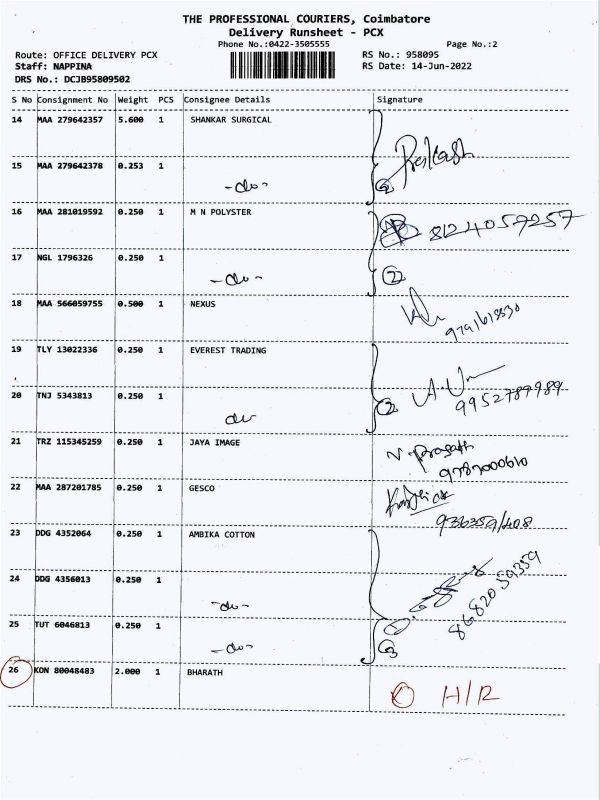 THE PROFESSIONAL COURIERS, Coimbatore
Delivery Runsheet - PCX
Phone No.:0422-3505555 Page No.:2
Route: OFFICE DELIVERY PCX RS No.: 958095
Staff: NAPPINA RS Date: 14-Jun-2022
DRS No.: DCJB95809502
S No Consignment No Weight PCS Consignee Details Signature
14 MAA 279642357 5.600 1 SHANKAR SURGICAL
15 MAA 279642378 0.253 1 -do- 2
16 MAA 281019592 0.250 1 M N POLYSTER 8124057257
17 NGL 1796326 0.250 1 -do- 2
18 MAA 566059755 0.500 1 NEXUS
19 TLY 13022336 0.250 1 EVEREST TRADING
20 TNJ 5343813 0.250 1 do 2 9952787989
21 TRZ 115345259 0.250 1 JAYA IMAGE N. Prasath
9787000610
22 MAA 287201785 0.250 1 GESCO
23 DDG 4352064 0.250 1 AMBIKA COTTON
24 DDG 4356013 0.250 1 -do- 8682059359
25 TUT 6046813 0.250 1 -do- 3
26 KON 80048483 2.000 1 BHARATH H/R